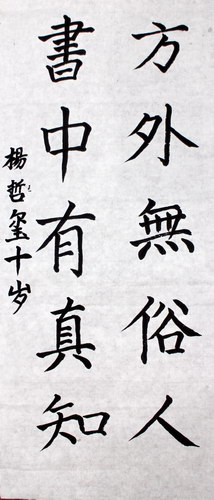 方外無俗人
書中有真知
楊哲玺十岁